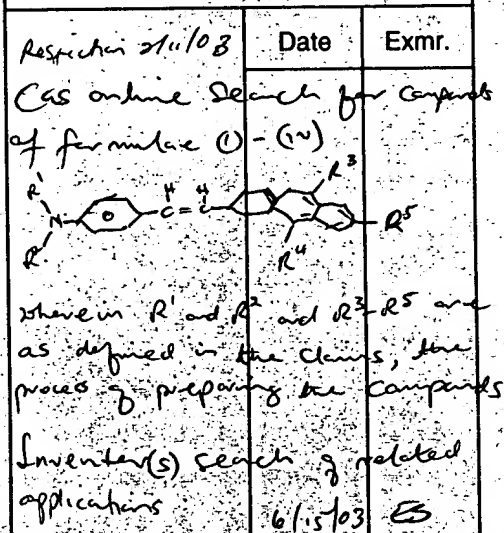 Date Exmr.
Restriction 2/11/03
Cas online search for compounds
of formulae (I) - (IV)
R' N C = C H H R³ R⁴ R⁵
R
wherein R' and R² and R³-R⁵ are
as defined in the claims, the
process of preparing the compounds
Inventor(s) search of related
applications 6/15/03 ES